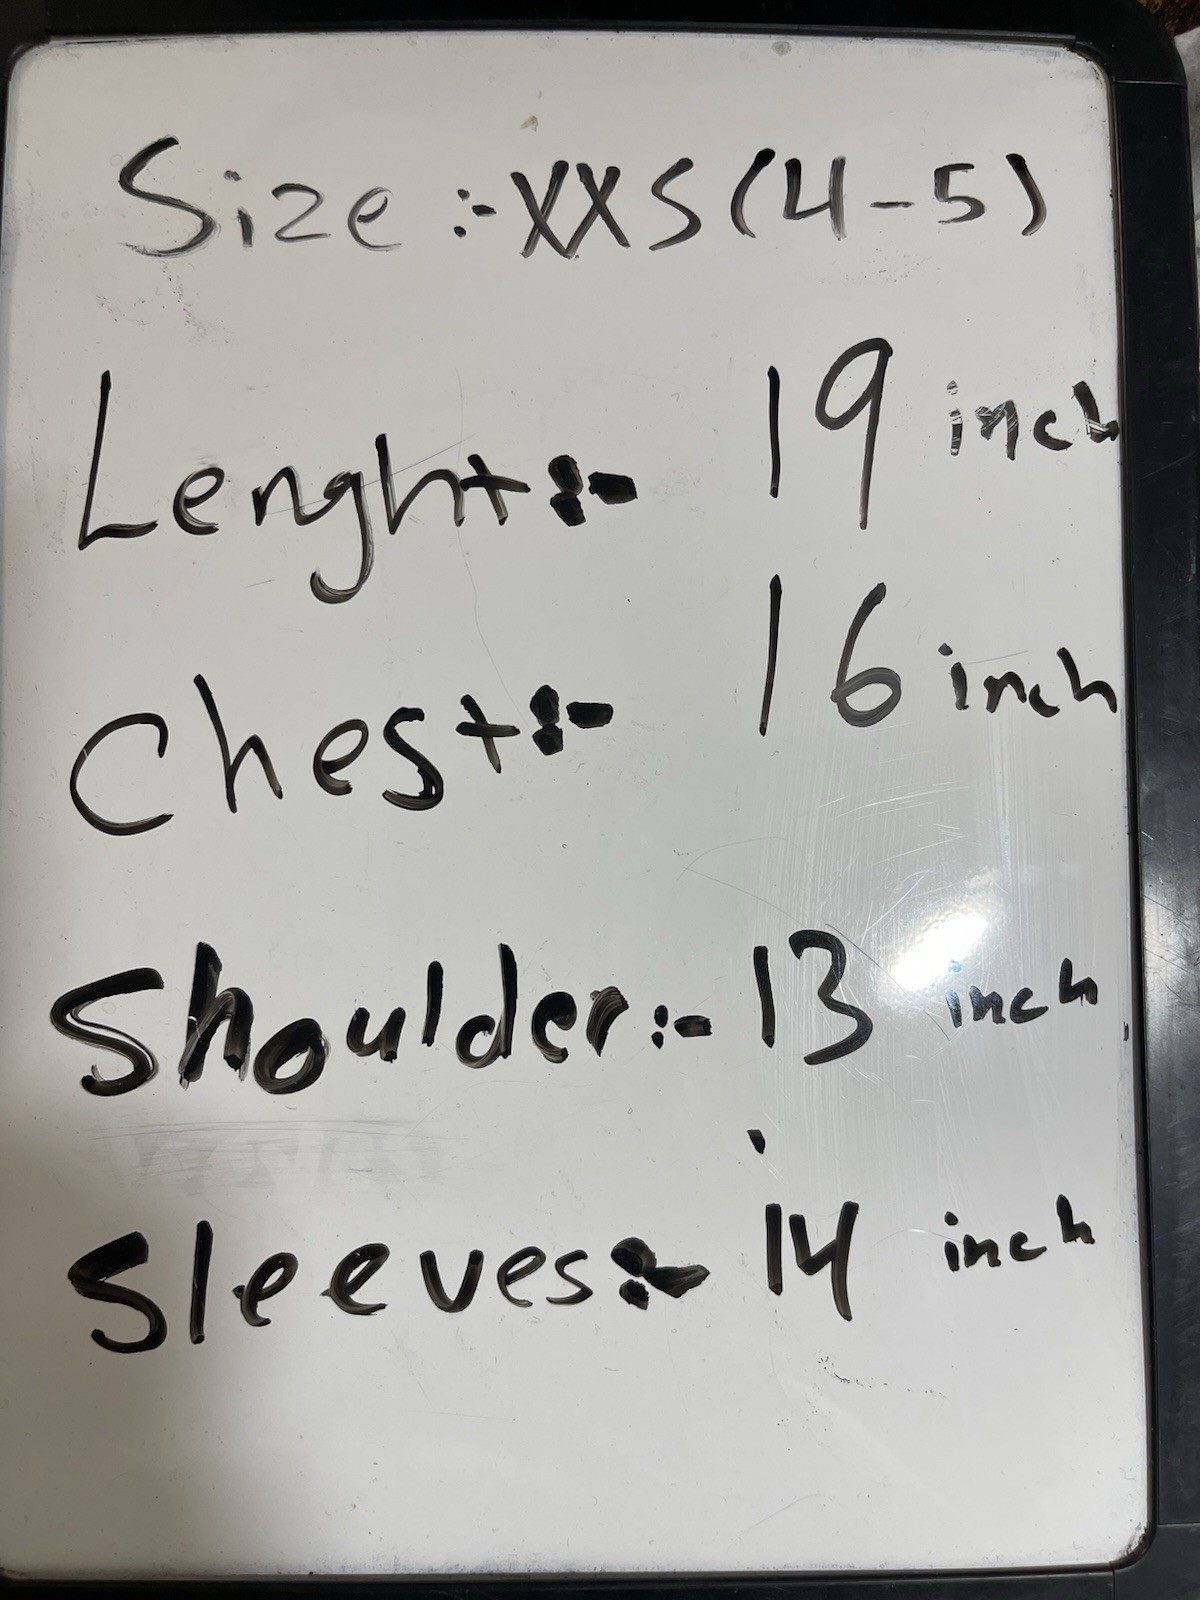 Size :- XXS (4-5)
Lenght :- 19 inch
Chest :- 16 inch
Shoulder :- 13 inch
Sleeves :- 14 inch